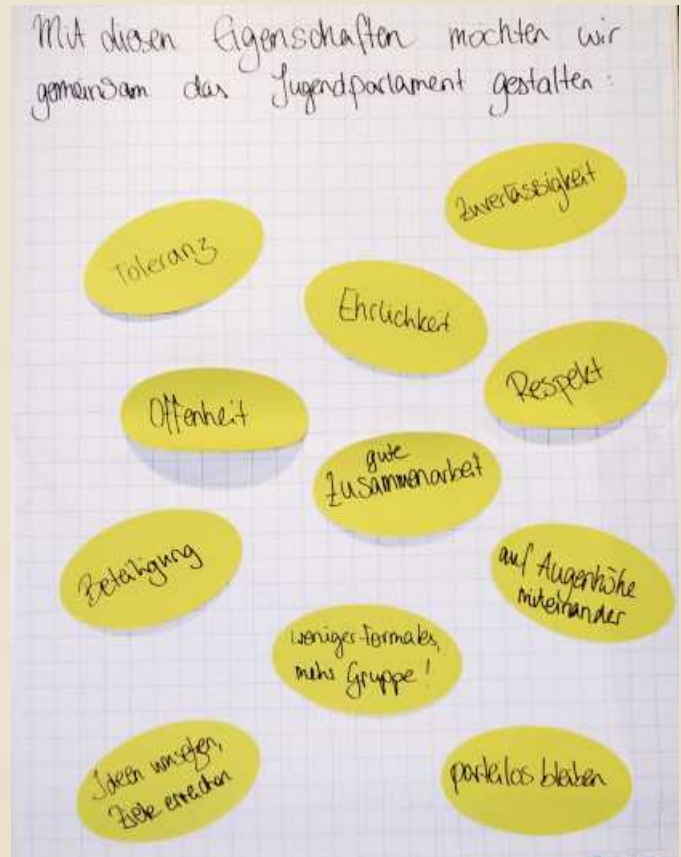 Mit diesen Eigenschaften möchten wir
gemeinsam das Jugendparlament gestalten:
Zuverlässigkeit
Toleranz
Ehrlichkeit
Respekt
Offenheit
gute
Zusammenarbeit
Beteiligung
auf Augenhöhe
miteinander
weniger Formales,
mehr Gruppe!
Ideen umsetzen,
Ziele erreichen
parteilos bleiben